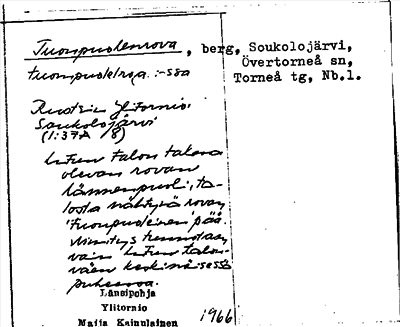 Tuonpuolenrova, berg, Soukolojärvi,
Övertorneå sn,
Torneå tg, Nb.l.
tuompuolelroa :-ssa
Ruotsin Ylitornio
Soukolojärvi
(1:37A 8)
talon takana
olevan rovan
lännenpuoli, ta-
losta nähtynä rovan
"tuonpuoleinen" pää.
Nimitys tunnetaan
vain talon-
väen keskinäisessä
puheessa.
Länsipohja
Ylitornio
Maija Kainulainen
1966